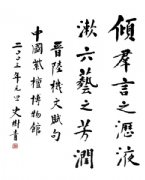 傾羣言之瀝液
漱六藝之芳潤
晉陸機文賦句
中國紫檀博物館
二〇〇三年元旦史樹青